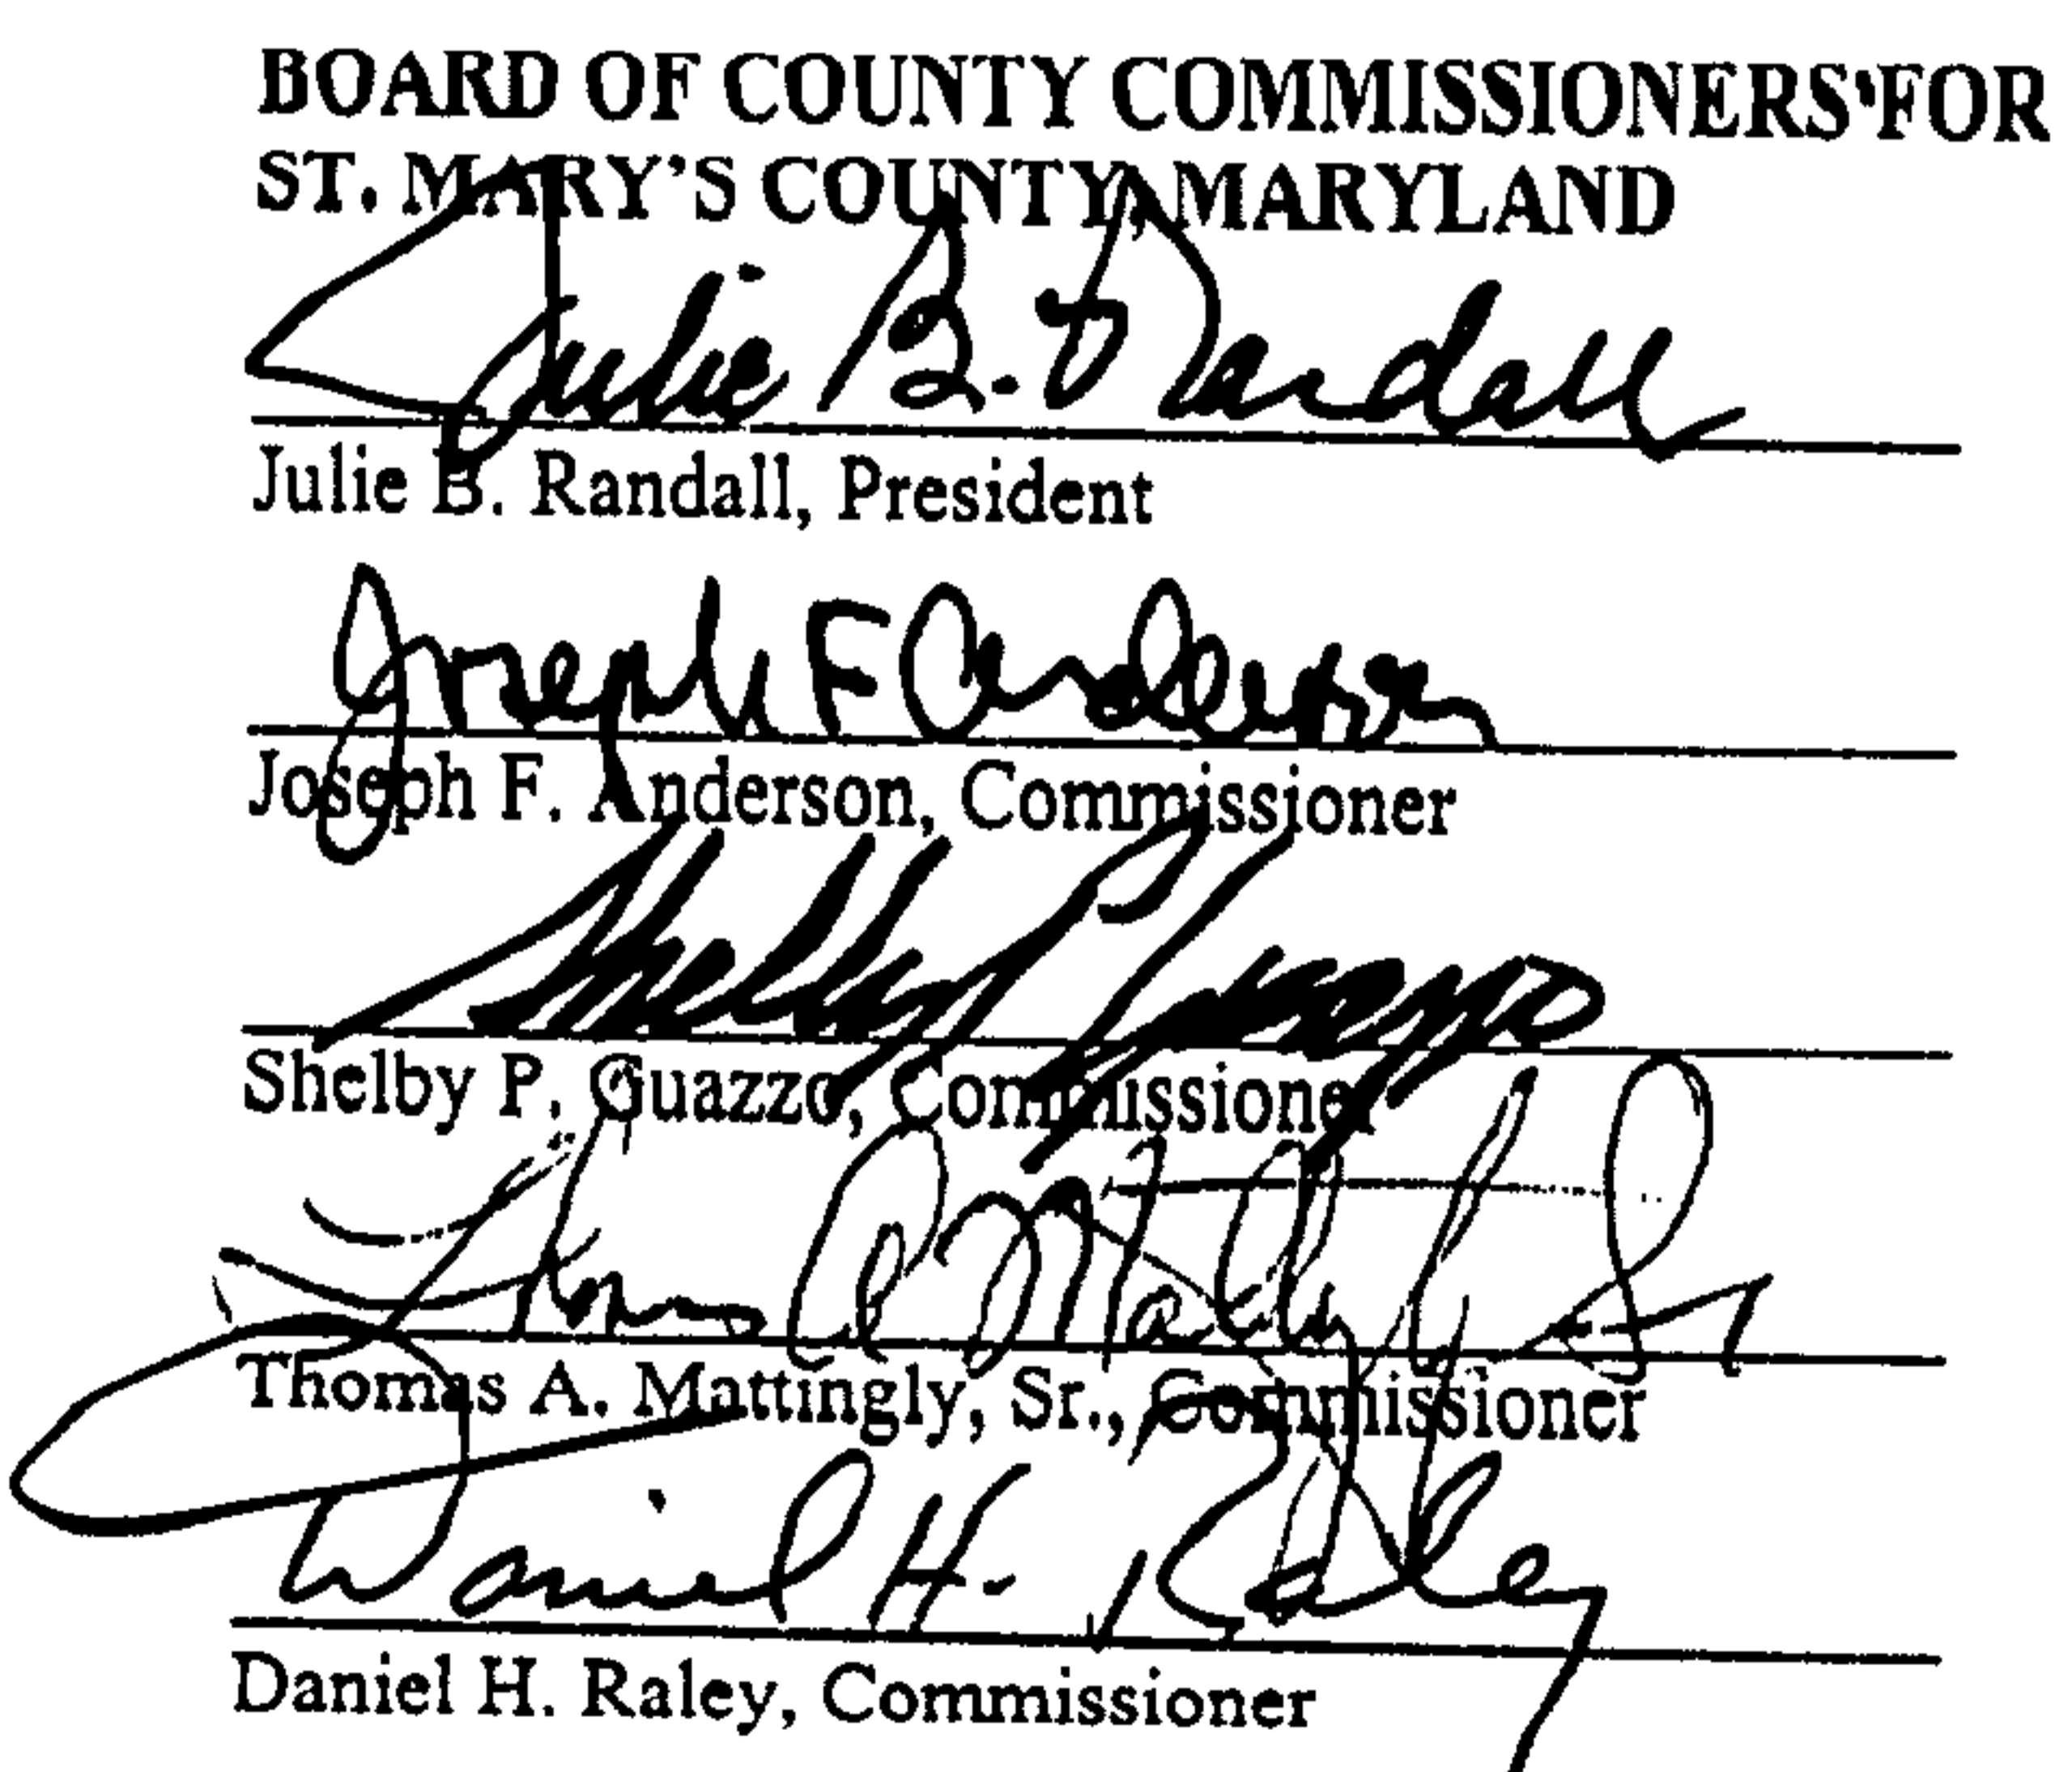 BOARD OF COUNTY COMMISSIONERS FOR
ST. MARY'S COUNTY, MARYLAND
Julie B. Randall
Julie B. Randall, President
Joseph F Anderson
Joseph F. Anderson, Commissioner
Shelby P. Guazzo
Shelby P. Guazzo, Commissioner
Thomas A Mattingly Sr
Thomas A. Mattingly, Sr., Commissioner
Daniel H. Raley
Daniel H. Raley, Commissioner